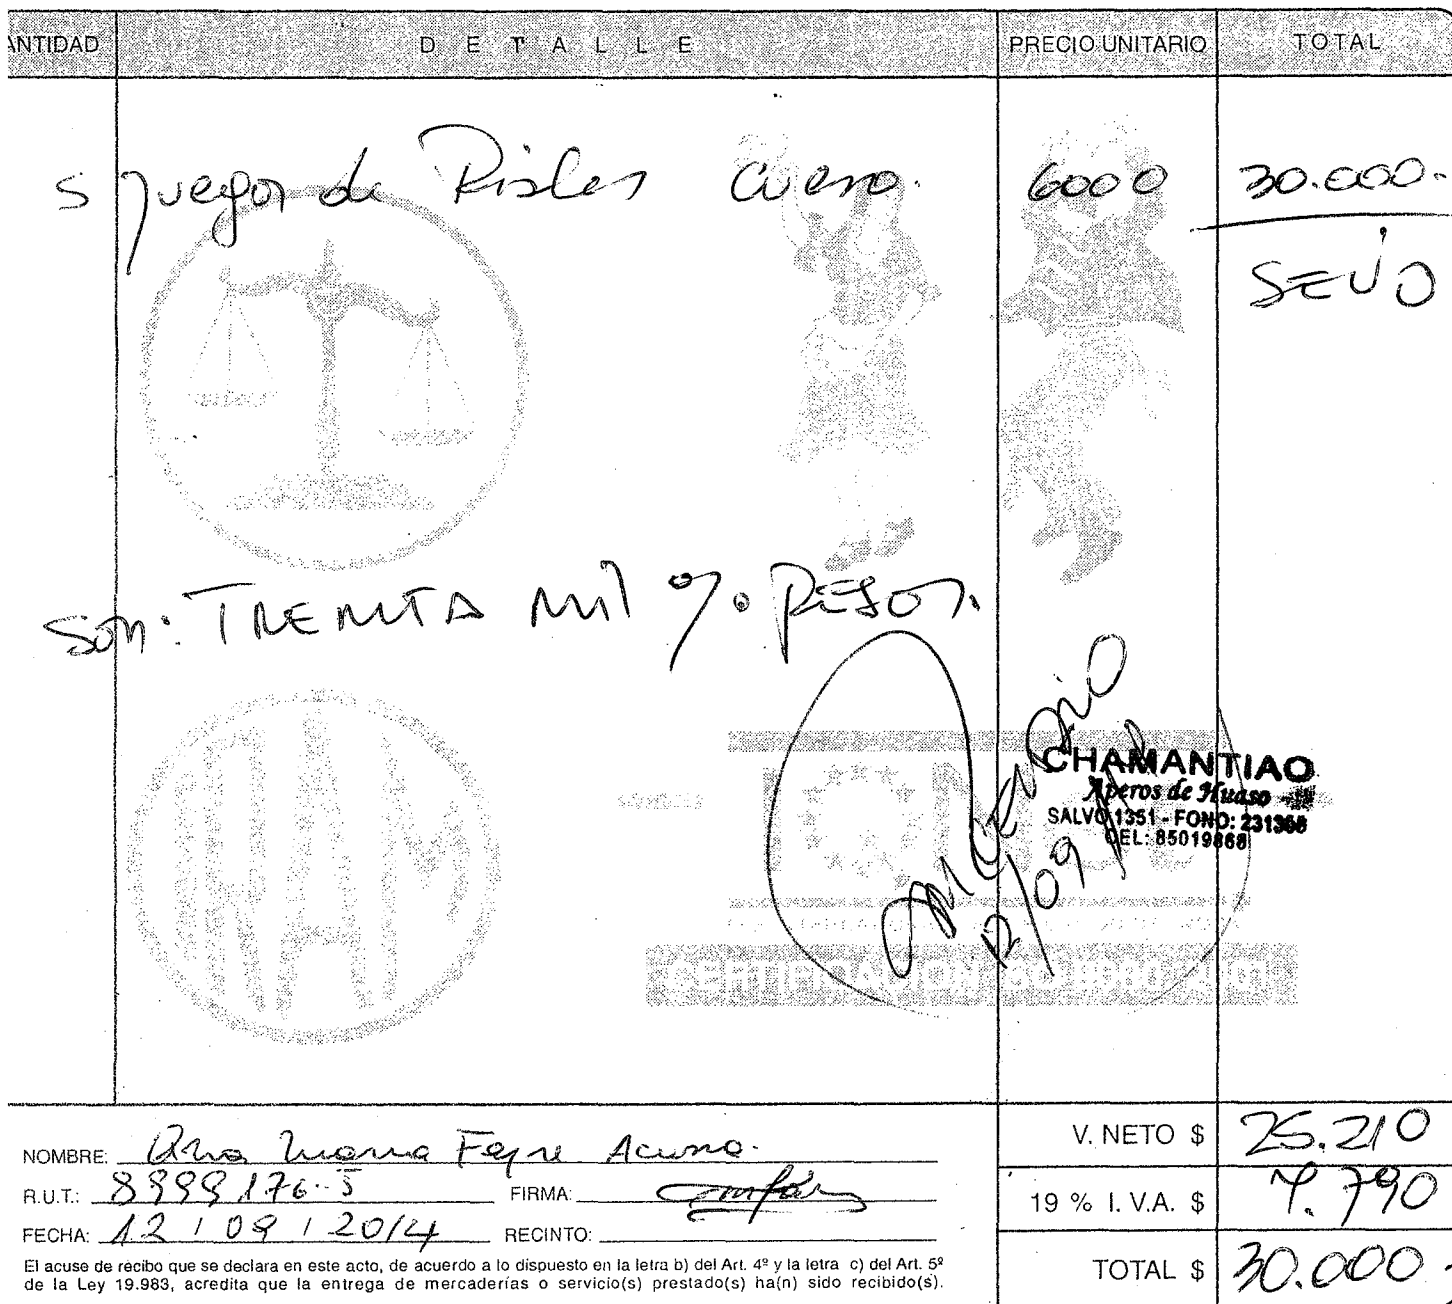 ANTIDAD DETALLE PRECIO UNITARIO TOTAL
5 juegos de Rieles Cuero. 6000 30.000.-
SEUO
Son: TREINTA Mil %. PESOS.
12/09/
CHAMANTIAO
Aperos de Huaso
SALVO 1351 - FONO: 231368
CEL: 85019868
CERTIFICACION ISO 9001:2001
V. NETO $ 25.210
NOMBRE: Ana Maria Acuna.
R.U.T.: 8999176-5 FIRMA:
19 % I. V.A. $ 4.790
FECHA: 12 / 09 / 2014 RECINTO:
El acuse de recibo que se declara en este acto, de acuerdo a lo dispuesto en la letra b) del Art. 4º y la letra c) del Art. 5º
de la Ley 19.983, acredita que la entrega de mercaderías o servicio(s) prestado(s) ha(n) sido recibido(s).
TOTAL $ 30.000.-